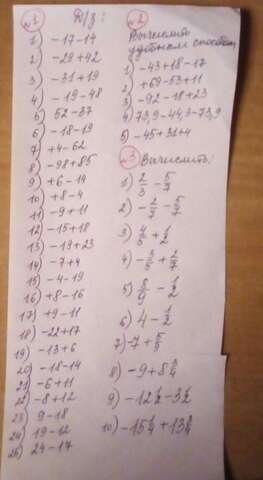 №1 Д/З:
1) -17-14
2) -29+42
3) -31+19
4) -19-48
5) 52-37
6) -18-19
7) +4-62
8) -98+85
9) +6-14
10) +8-4
11) -9+11
12) -15+18
13) -19+23
14) -7+4
15) -4-19
16) +8-16
17) +9-11
18) -22+17
19) -13+6
20) -18-14
21) -6+11
22) -8+12
23) 9-18
24) 19-12
25) 24-17
№2
Вычислить
удобным способом
1) -43+18-17
2) +69-53+11
3) -92-18+23
4) 73,9-44,3-73,9
5) -45+31+4
№3 Вычислить:
1) 2/3 - 5/7
2) -2/3 - 5/7
3) 4/5 + 1/2
4) -3/5 + 2/7
5) 5/9 - 1/2
6) 4 - 1/2
7) -7 + 5/9
8) -9+5 3/4
9) -12 1/2 - 3 1/2
10) -15 1/4 + 13 1/8